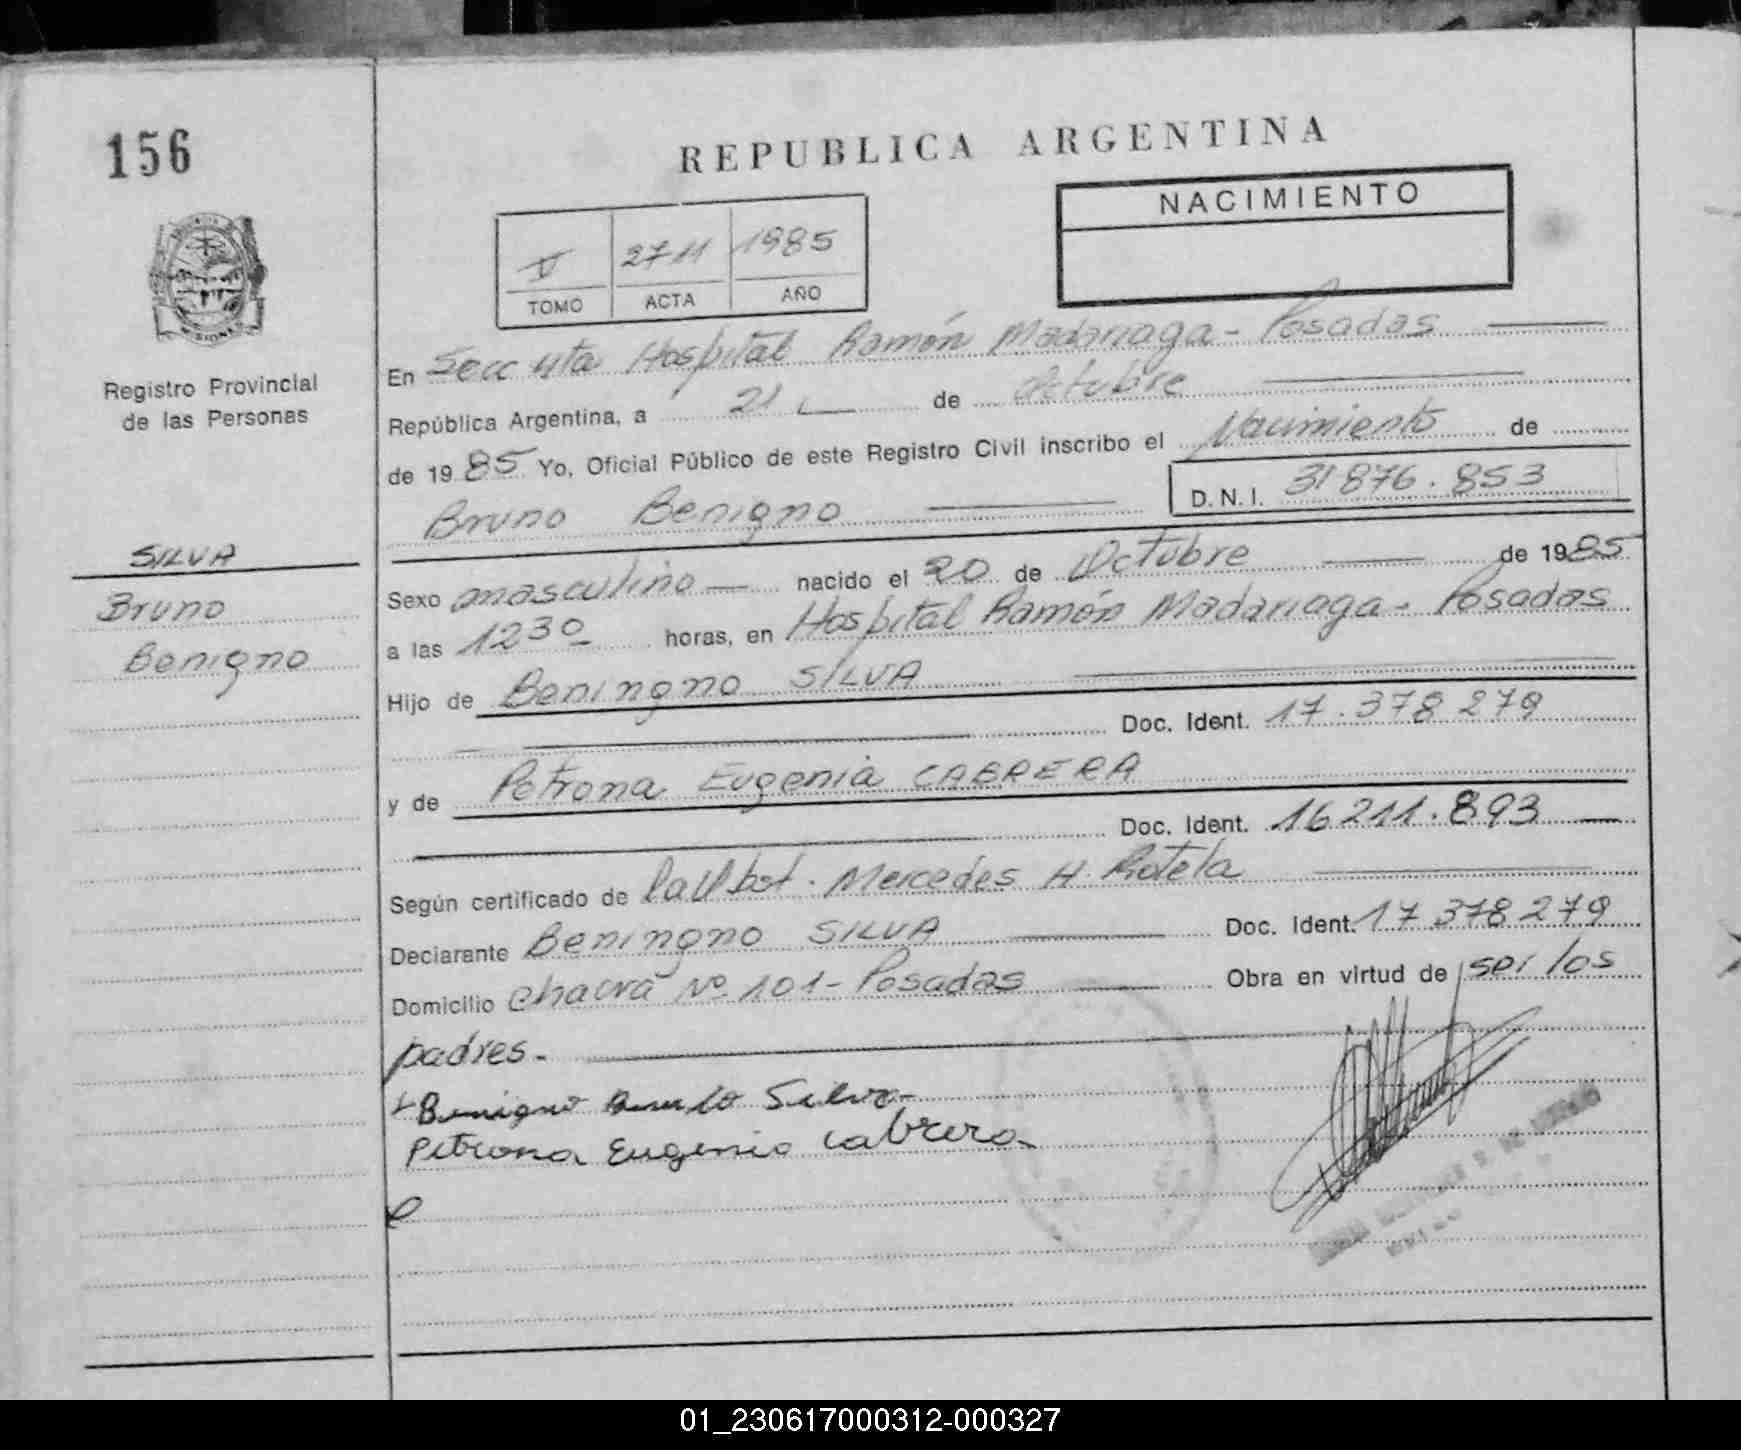 156
REPUBLICA ARGENTINA
NACIMIENTO
V 2711 1985
TOMO ACTA AÑO
MISIONES
Registro Provincial
de las Personas
SILVA
Bruno
Benigno
En Secc 4ta Hospital Ramón Madariaga - Posadas
República Argentina, a 21 de Octubre
de 1985 Yo, Oficial Público de este Registro Civil inscribo el Nacimiento de
Bruno Benigno D.N.I. 31876.853
Sexo masculino nacido el 20 de Octubre de 1985
a las 12 30 horas, en Hospital Ramón Madariaga - Posadas
Hijo de Beningno SILVA
Doc. Ident. 17.378 279
y de Petrona Eugenia CABRERA
Doc. Ident. 16211.893
Según certificado de Mercedes H. Rotela
Declarante Beningno SILVA Doc. Ident. 17 378 279
Domicilio chacra Nº 101 - Posadas Obra en virtud de ser los
padres.
Benigno Silva
Petrona Eugenia Cabrera
01_230617000312-000327